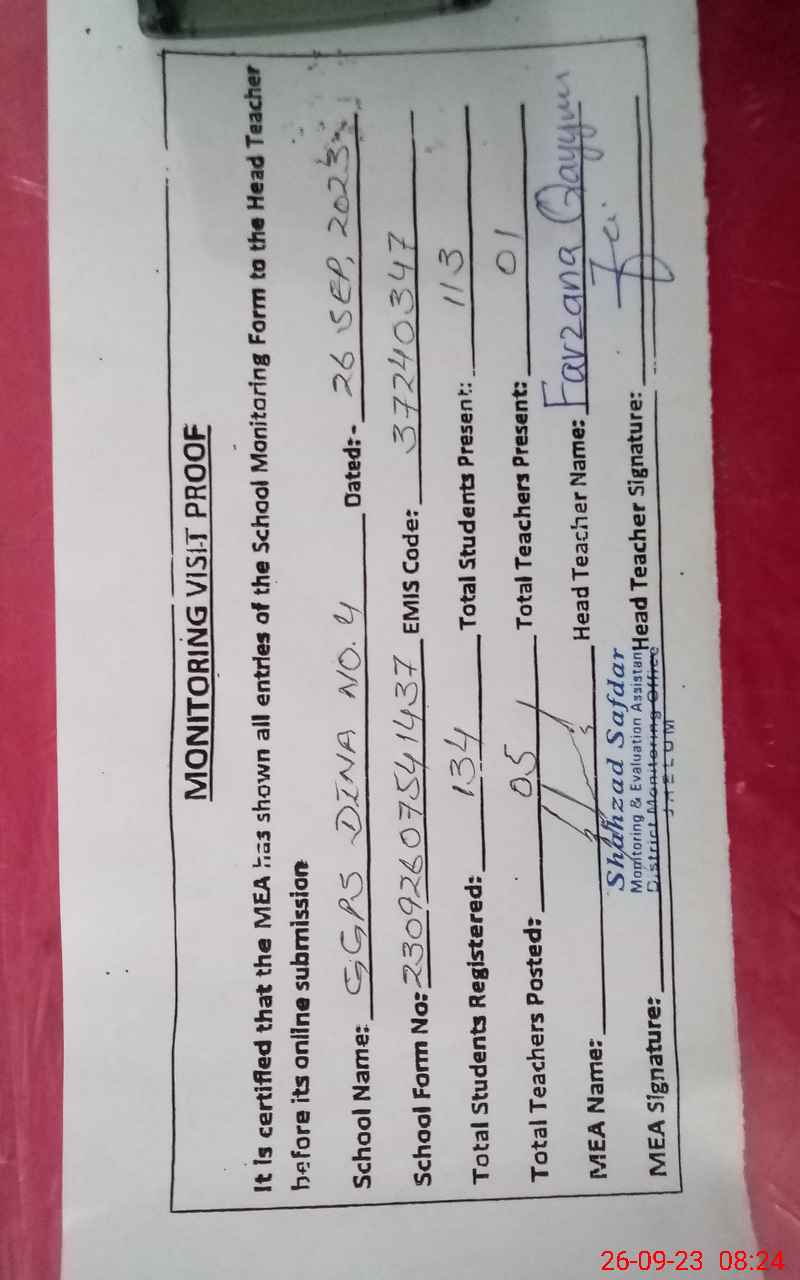 MONITORING VISIT PROOF
It is certified that the MEA has shown all entries of the School Monitoring Form to the Head Teacher
before its online submission
School Name: GGPS DINA NO. 4 Dated:- 26 SEP, 2023
School Form No: 23092607541437 EMIS Code: 37240347
Total Students Registered: 134 Total Students Present: 113
Total Teachers Posted: 05 Total Teachers Present: 01
MEA Name: Head Teacher Name: Farzana Qayyum
Shahzad Safdar
Monitoring & Evaluation Assistant
District Monitoring Office
JHELUM
MEA Signature: Head Teacher Signature:
26-09-23 08:24